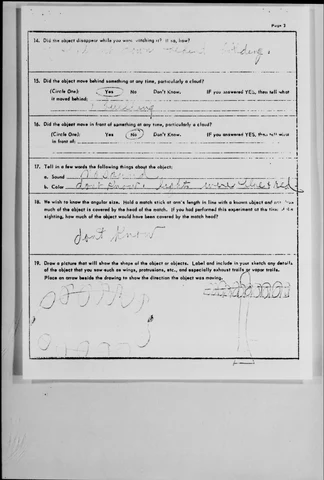 Page 3
14. Did the object disappear while you were watching it? If so, how?
15. Did the object move behind something at any time, particularly a cloud?
(Circle One): Yes No Don't Know. IF you answered YES, then tell what
it moved behind:
16. Did the object move in front of something at any time, particularly a cloud?
(Circle One): Yes No Don't Know. IF you answered YES, then tell what
in front of:
17. Tell in a few words the following things about the object:
a. Sound no sound
b. Color don't know. lights were blue & red
18. We wish to know the angular size. Hold a match stick at arm's length in line with a known object and note how
much of the object is covered by the head of the match. If you had performed this experiment at the time of the
sighting, how much of the object would have been covered by the match head?
dont know
19. Draw a picture that will show the shape of the object or objects. Label and include in your sketch any details
of the object that you saw such as wings, protrusions, etc., and especially exhaust trails or vapor trails.
Place an arrow beside the drawing to show the direction the object was moving.